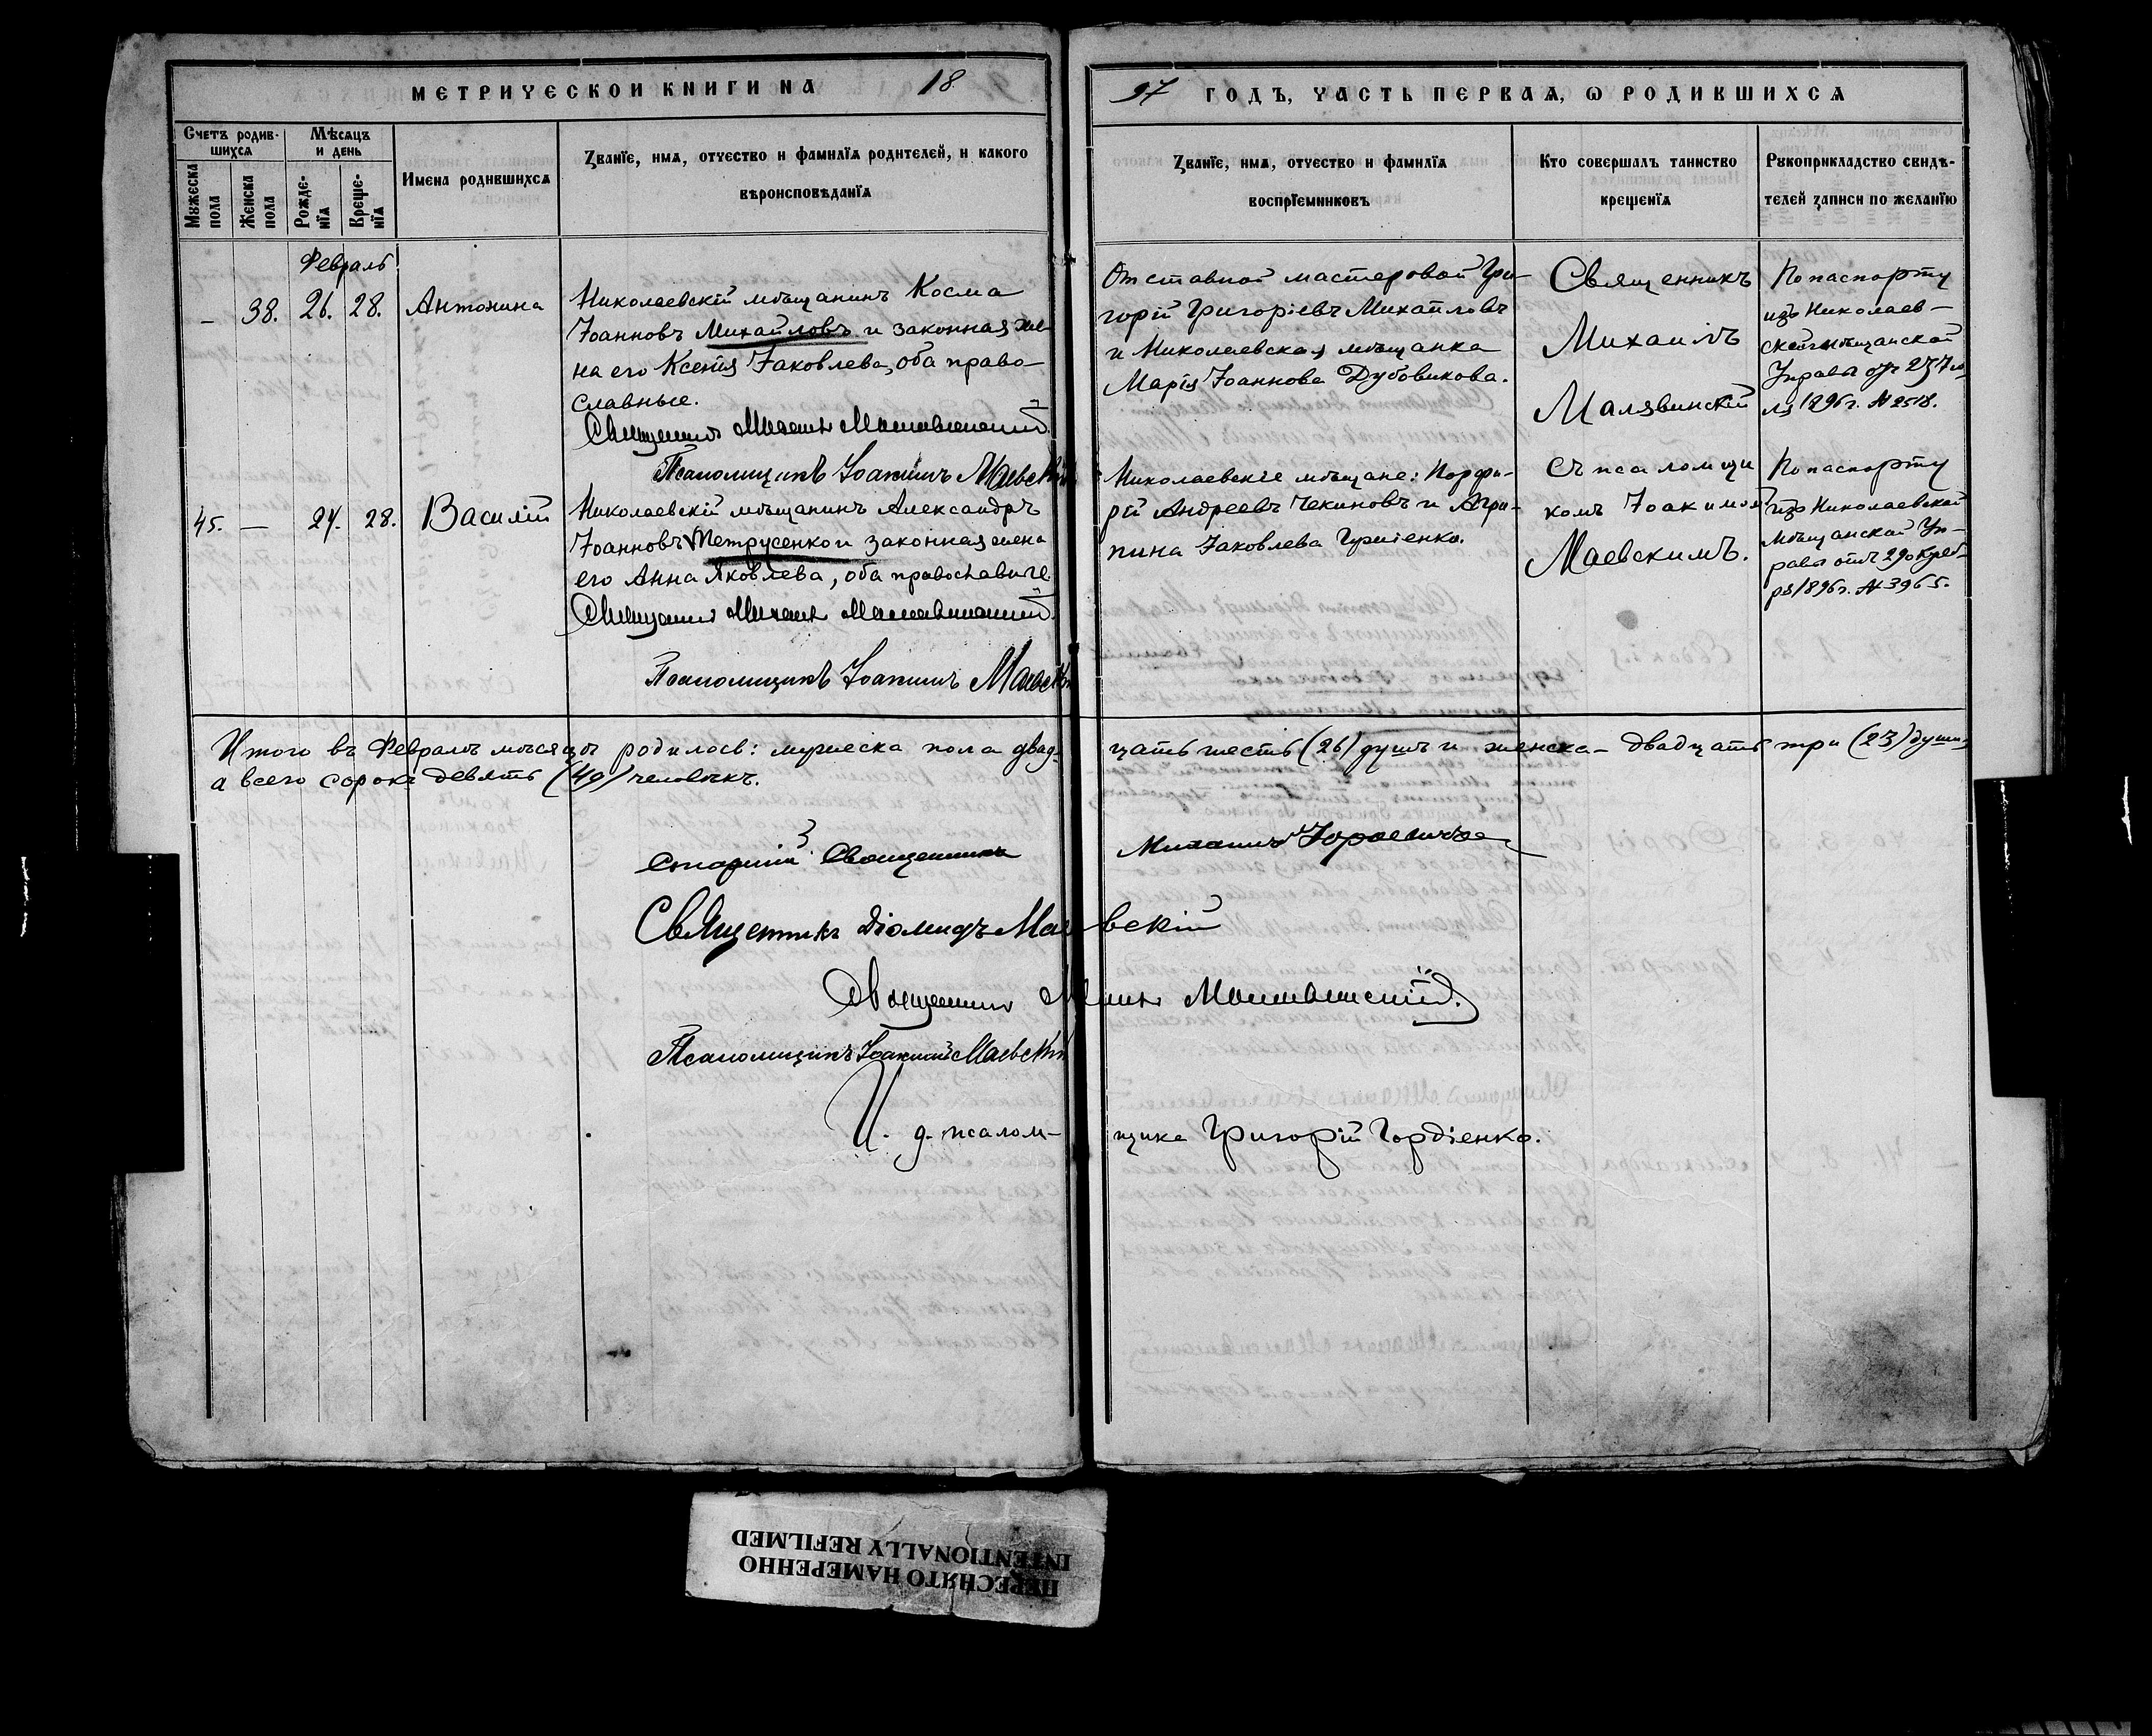 МЕТРИЧЕСКОЙ КНИГИ НА 18
97 ГОДЪ, ЧАСТЬ ПЕРВАЯ, Ѡ РОДИВШИХСЯ
Счетъ родив-
шихся
Мѣсяцъ
и день
Мужеска
пола
Женска
пола
Рожде-
нїя
Креще-
нїя
Имена родившихся
Званїе, имя, отчество и фамилїя родителей, и какого
вѣроисповѣданїя
Званїе, имя, отчество и фамилїя
воспрїемниковъ
Кто совершалъ таинство
крещенїя
Рукоприкладство свидѣ-
телей записи по желанїю
Февраль
– 38. 26. 28. Антонина
Николаевскій мѣщанинъ Косма
Іоанновъ Михайловъ и законная же-
на его Ксенія Іаковлева, оба право-
славные.
Священникъ Михаилъ Малявинскій
Псаломщикъ Іоакимъ Маевскій
Отставной мастеровой Гри-
горій Григоріевъ Михайловъ
и Николаевская мѣщанка
Марія Іоаннова Дубовикова.
Священникъ
Михаилъ
Малявинскій
съ псаломщи
комъ Іоакимом
Маевскимъ.
По паспорту
изъ Николаев-
ской мѣщанской
Управы отъ 23 Iю
ля 1896 г. № 2518.
45. – 24. 28. Василій
Николаевскій мѣщанинъ Александръ
Іоанновъ Петрусенко и законная жена
его Анна Яковлева, оба православные.
Священникъ Михаилъ Малявинскій
Псаломщикъ Іоакимъ Маевскій
Николаевскіе мѣщане: Порфи-
рій Андреевъ Чекиновъ и Агри-
пина Іаковлева Гриценко.
По паспорту
изъ Николаевской
мѣщанской Уп-
равы отъ 29 октяб-
ря 1896 г. № 3965.
Итого въ Февралѣ мѣсяцѣ родилось: мужеска пола двад-
цать шесть (26) душъ и женска – двадцать три (23) души,
а всего сорокъ девять (49) человѣкъ.
Старшій Священникъ Михаилъ
Священникъ Діомидъ Маевскій
Священникъ Михаилъ Малявинскій.
Псаломщикъ Іоакимъ Маевскій
И. д. псалом-
щика Григорій Гордіенко.
ПЕРЕСНЯТО НАМЕРЕННО
INTENTIONALLY REFILMED